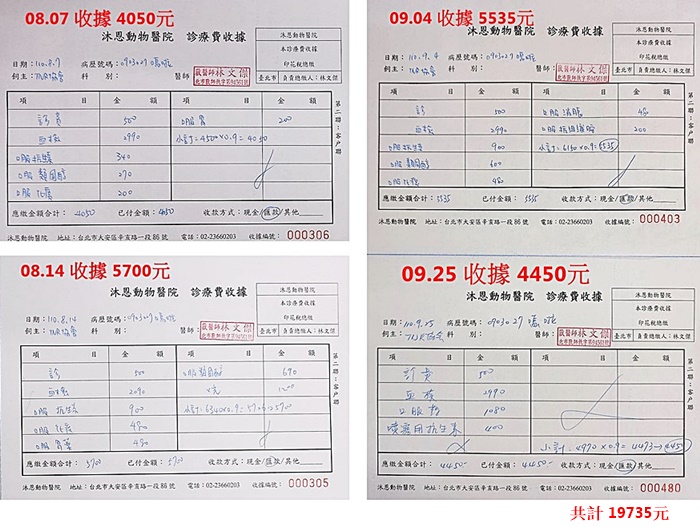 08.07 收據 4050元
沐恩動物醫院 診療費收據
沐恩動物醫院
本診療費收據
印花稅總繳
臺北市 負責總繳人:林文傑
日期:110.8.7 病歷號碼:090327
飼主: 科別: 醫師:
獸醫師林文傑
項目 金額 項目 金額
診費 500 口服胃 200
血檢 2990 小計=4500×0.9=4050
口服抗生素 340
口服類固醇 270
口服化痰 200
應繳金額合計:4050 已付金額:4050 收款方式:現金/匯款/其他
沐恩動物醫院 地址:台北市大安區辛亥路一段86號 電話:02-23660203 收據編號: 000306
第二聯:客戶聯
09.04 收據 5535元
沐恩動物醫院 診療費收據
沐恩動物醫院
本診療費收據
印花稅總繳
臺北市 負責總繳人:林文傑
日期:110.9.4 病歷號碼:090327
飼主: 科別: 醫師:
獸醫師林文傑
項目 金額 項目 金額
診 500 口服
血檢 2990 口服抗組織胺 200
口服抗生素 900 小計=6150×0.9=5535
口服類固醇 600
口服化痰
應繳金額合計:5535 已付金額:5535 收款方式:現金/匯款/其他
沐恩動物醫院 地址:台北市大安區辛亥路一段86號 電話:02-23660203 收據編號: 000403
第二聯:客戶聯
08.14 收據 5700元
沐恩動物醫院 診療費收據
沐恩動物醫院
本診療費收據
印花稅總繳
臺北市 負責總繳人:林文傑
日期:110.8.14 病歷號碼:090327
飼主: 科別: 醫師:
獸醫師林文傑
項目 金額 項目 金額
診 500 口服類固醇 690
血檢 2090
口服抗生素 900
口服化痰 480
口服胃藥 480
應繳金額合計:5700 已付金額:5700 收款方式:現金/匯款/其他
沐恩動物醫院 地址:台北市大安區辛亥路一段86號 電話:02-23660203 收據編號: 000305
第二聯:客戶聯
09.25 收據 4450元
沐恩動物醫院 診療費收據
沐恩動物醫院
本診療費收據
印花稅總繳
臺北市 負責總繳人:林文傑
日期:110.9.25 病歷號碼:090327
飼主: 科別: 醫師:
獸醫師林文傑
項目 金額 項目 金額
診費 500
血檢 2990
口服藥 1080
噴霧用抗生素 400
小計:4970×0.9=4473→4450
應繳金額合計:4450 已付金額:4450 收款方式:現金/匯款/其他
沐恩動物醫院 地址:台北市大安區辛亥路一段86號 電話:02-23660203 收據編號: 000480
第二聯:客戶聯
共計 19735元